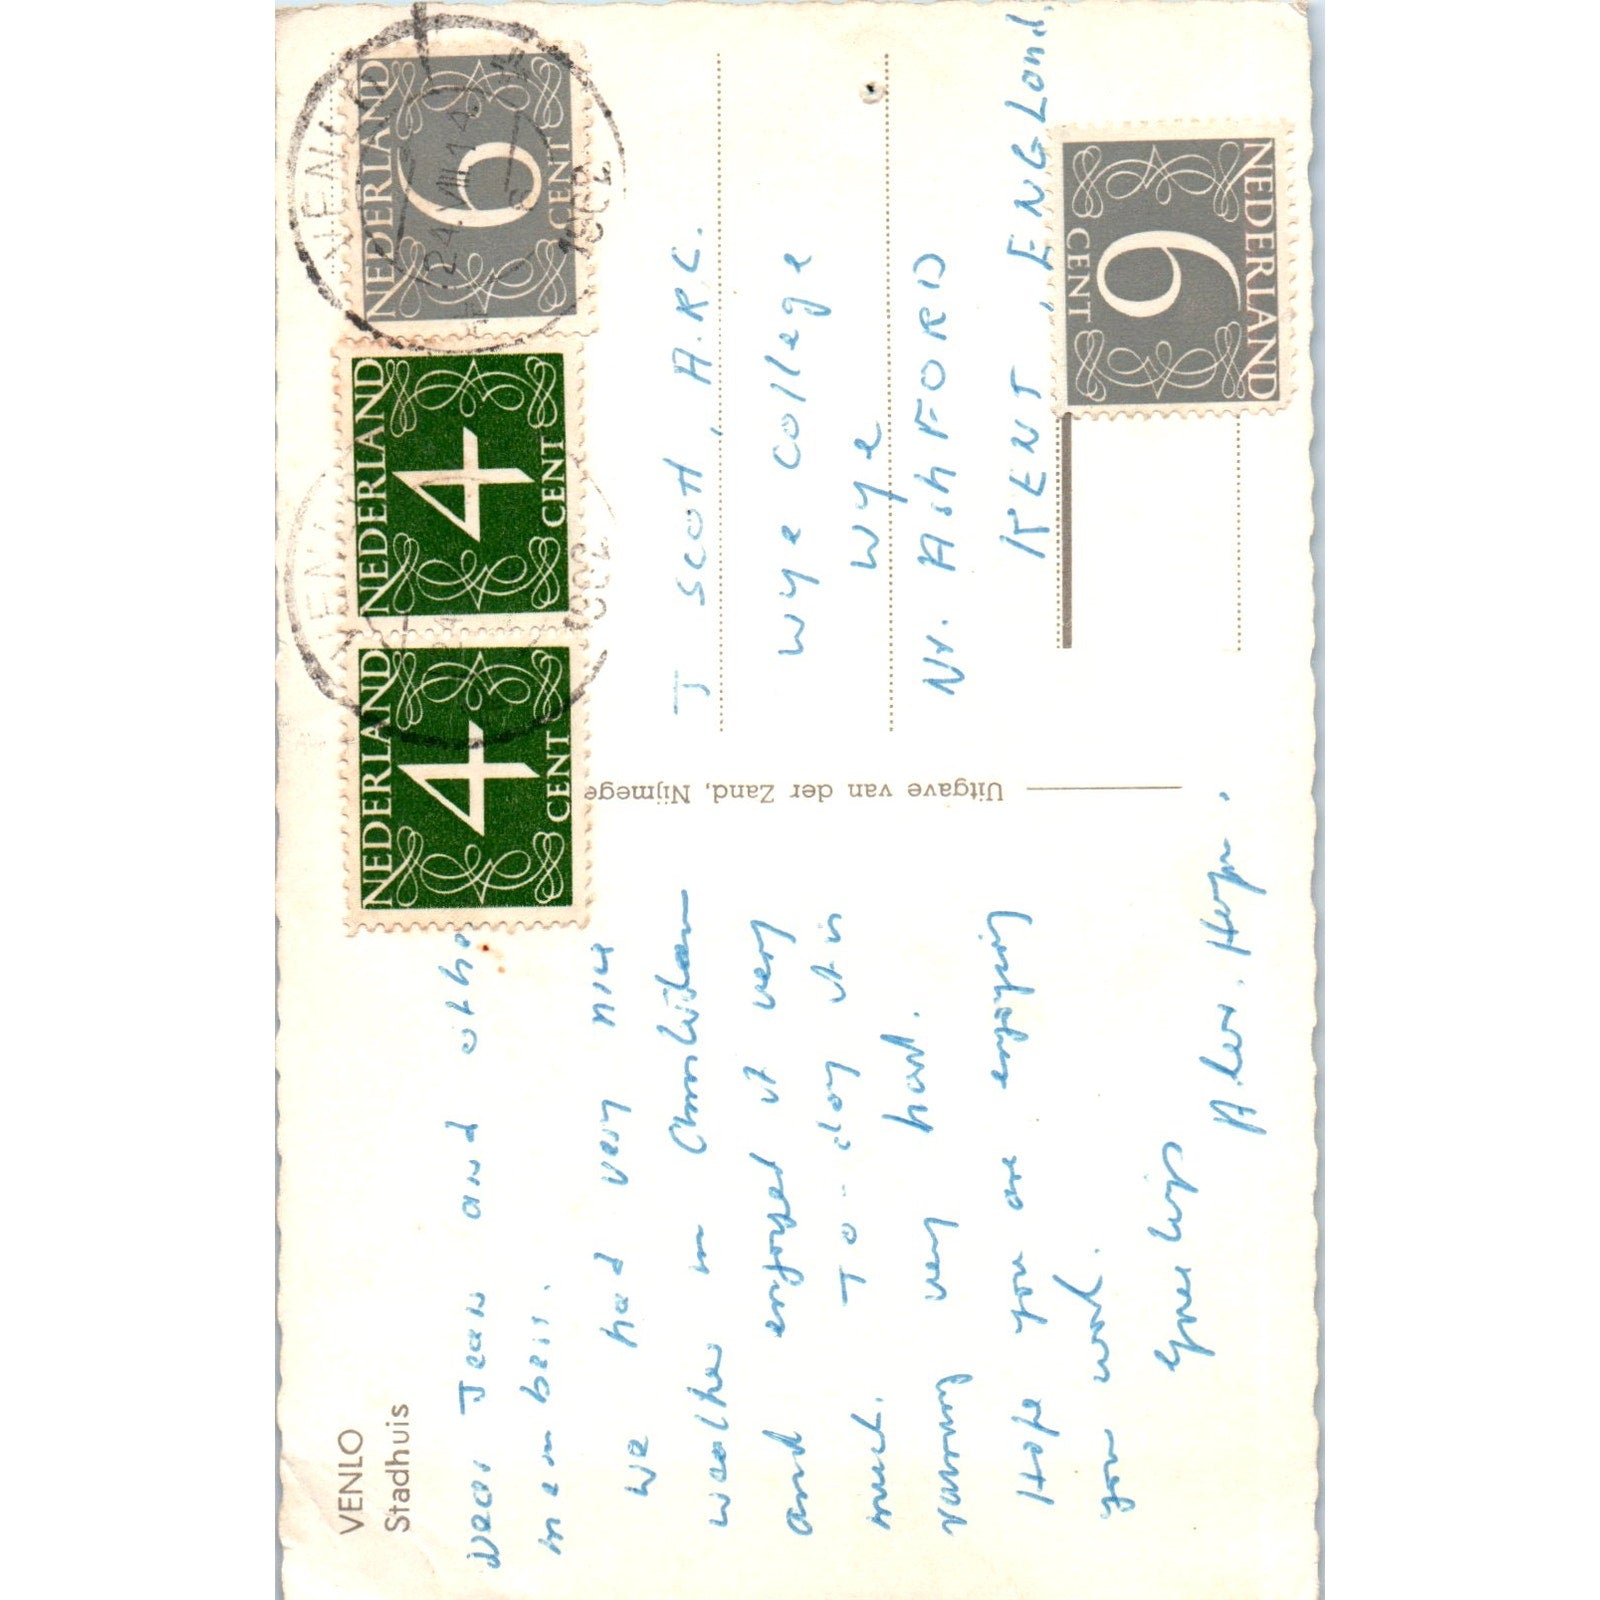 VENLO
Stadhuis
Dear Jean and othe
members.
We had very nice
weather in Amsterdam
and enjoyed it very
much. To-day it is
raining very hard.
Hope you are enjoying
your work.
Yours
Uitgave van der Zand, Nijmege
NEDERLAND
4
CENT
NEDERLAND
4
CENT
NEDERLAND
6
CENT
24.VIII
J Scott, A.R.C.
Wye College
Wye
Nr. AshFORD
KENT, ENGLand.
NEDERLAND
6
CENT